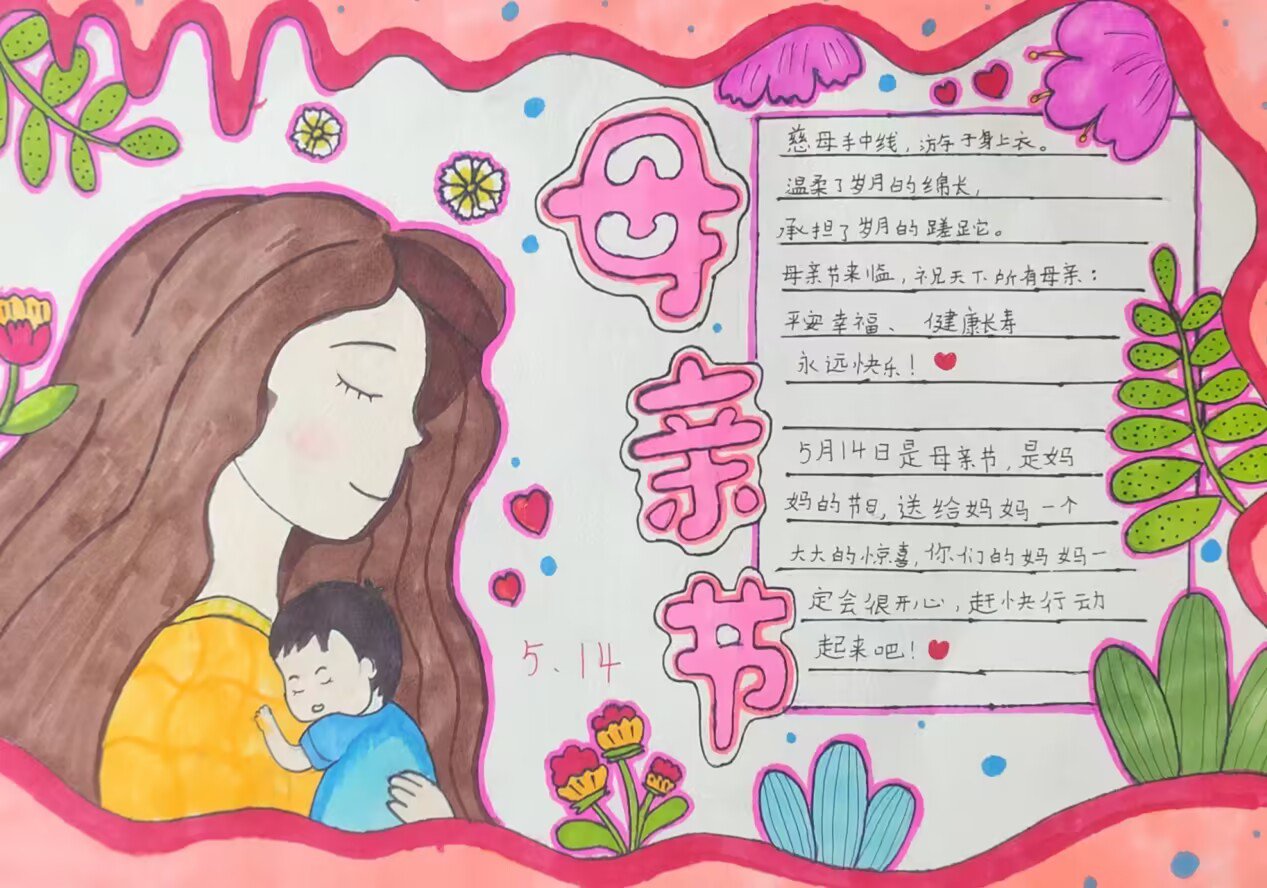 母亲节
慈母手中线，游子身上衣。
温柔了岁月的绵长，
承担了岁月的蹉跎。
母亲节来临，祝天下所有母亲：
平安幸福、健康长寿
永远快乐！
5月14日是母亲节，是妈
妈的节日，送给妈妈一个
大大的惊喜，你们的妈妈一
定会很开心，赶快行动
起来吧！
5.14